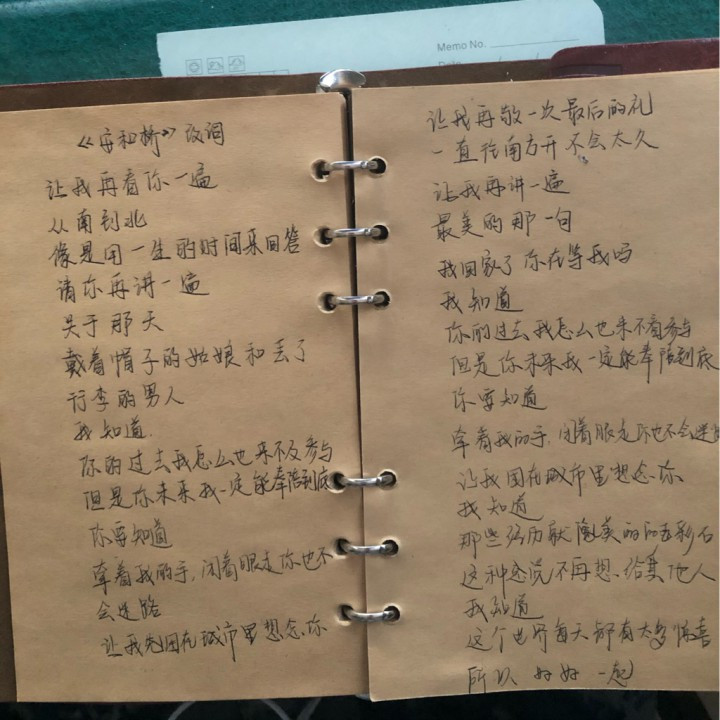 Memo No.
《安和桥》改词
让我再看你一遍
从南到北
像是用一生的时间来回答
请你再讲一遍
关于那天
戴着帽子的姑娘和丢了
行李的男人
我知道
你的过去我怎么也来不及参与
但是你未来我一定能奉陪到底
你要知道
牵着我的手,闭着眼走你也不
会迷路
让我先困在城市里想念你
让我再敬一次最后的礼
一直往南方开不会太久
让我再讲一遍
最美的那一句
我回家了你在等我吗
我知道
你的过去我怎么也来不着参与
但是你未来我一定能奉陪到底
你要知道
牵着我的手,闭着眼走你也不会迷
让我困在城市里想念你
我知道
那些 美的 彩石
这种 不再想给其他人
我知道
这个世界每天都有太多惊喜
所以好好一起